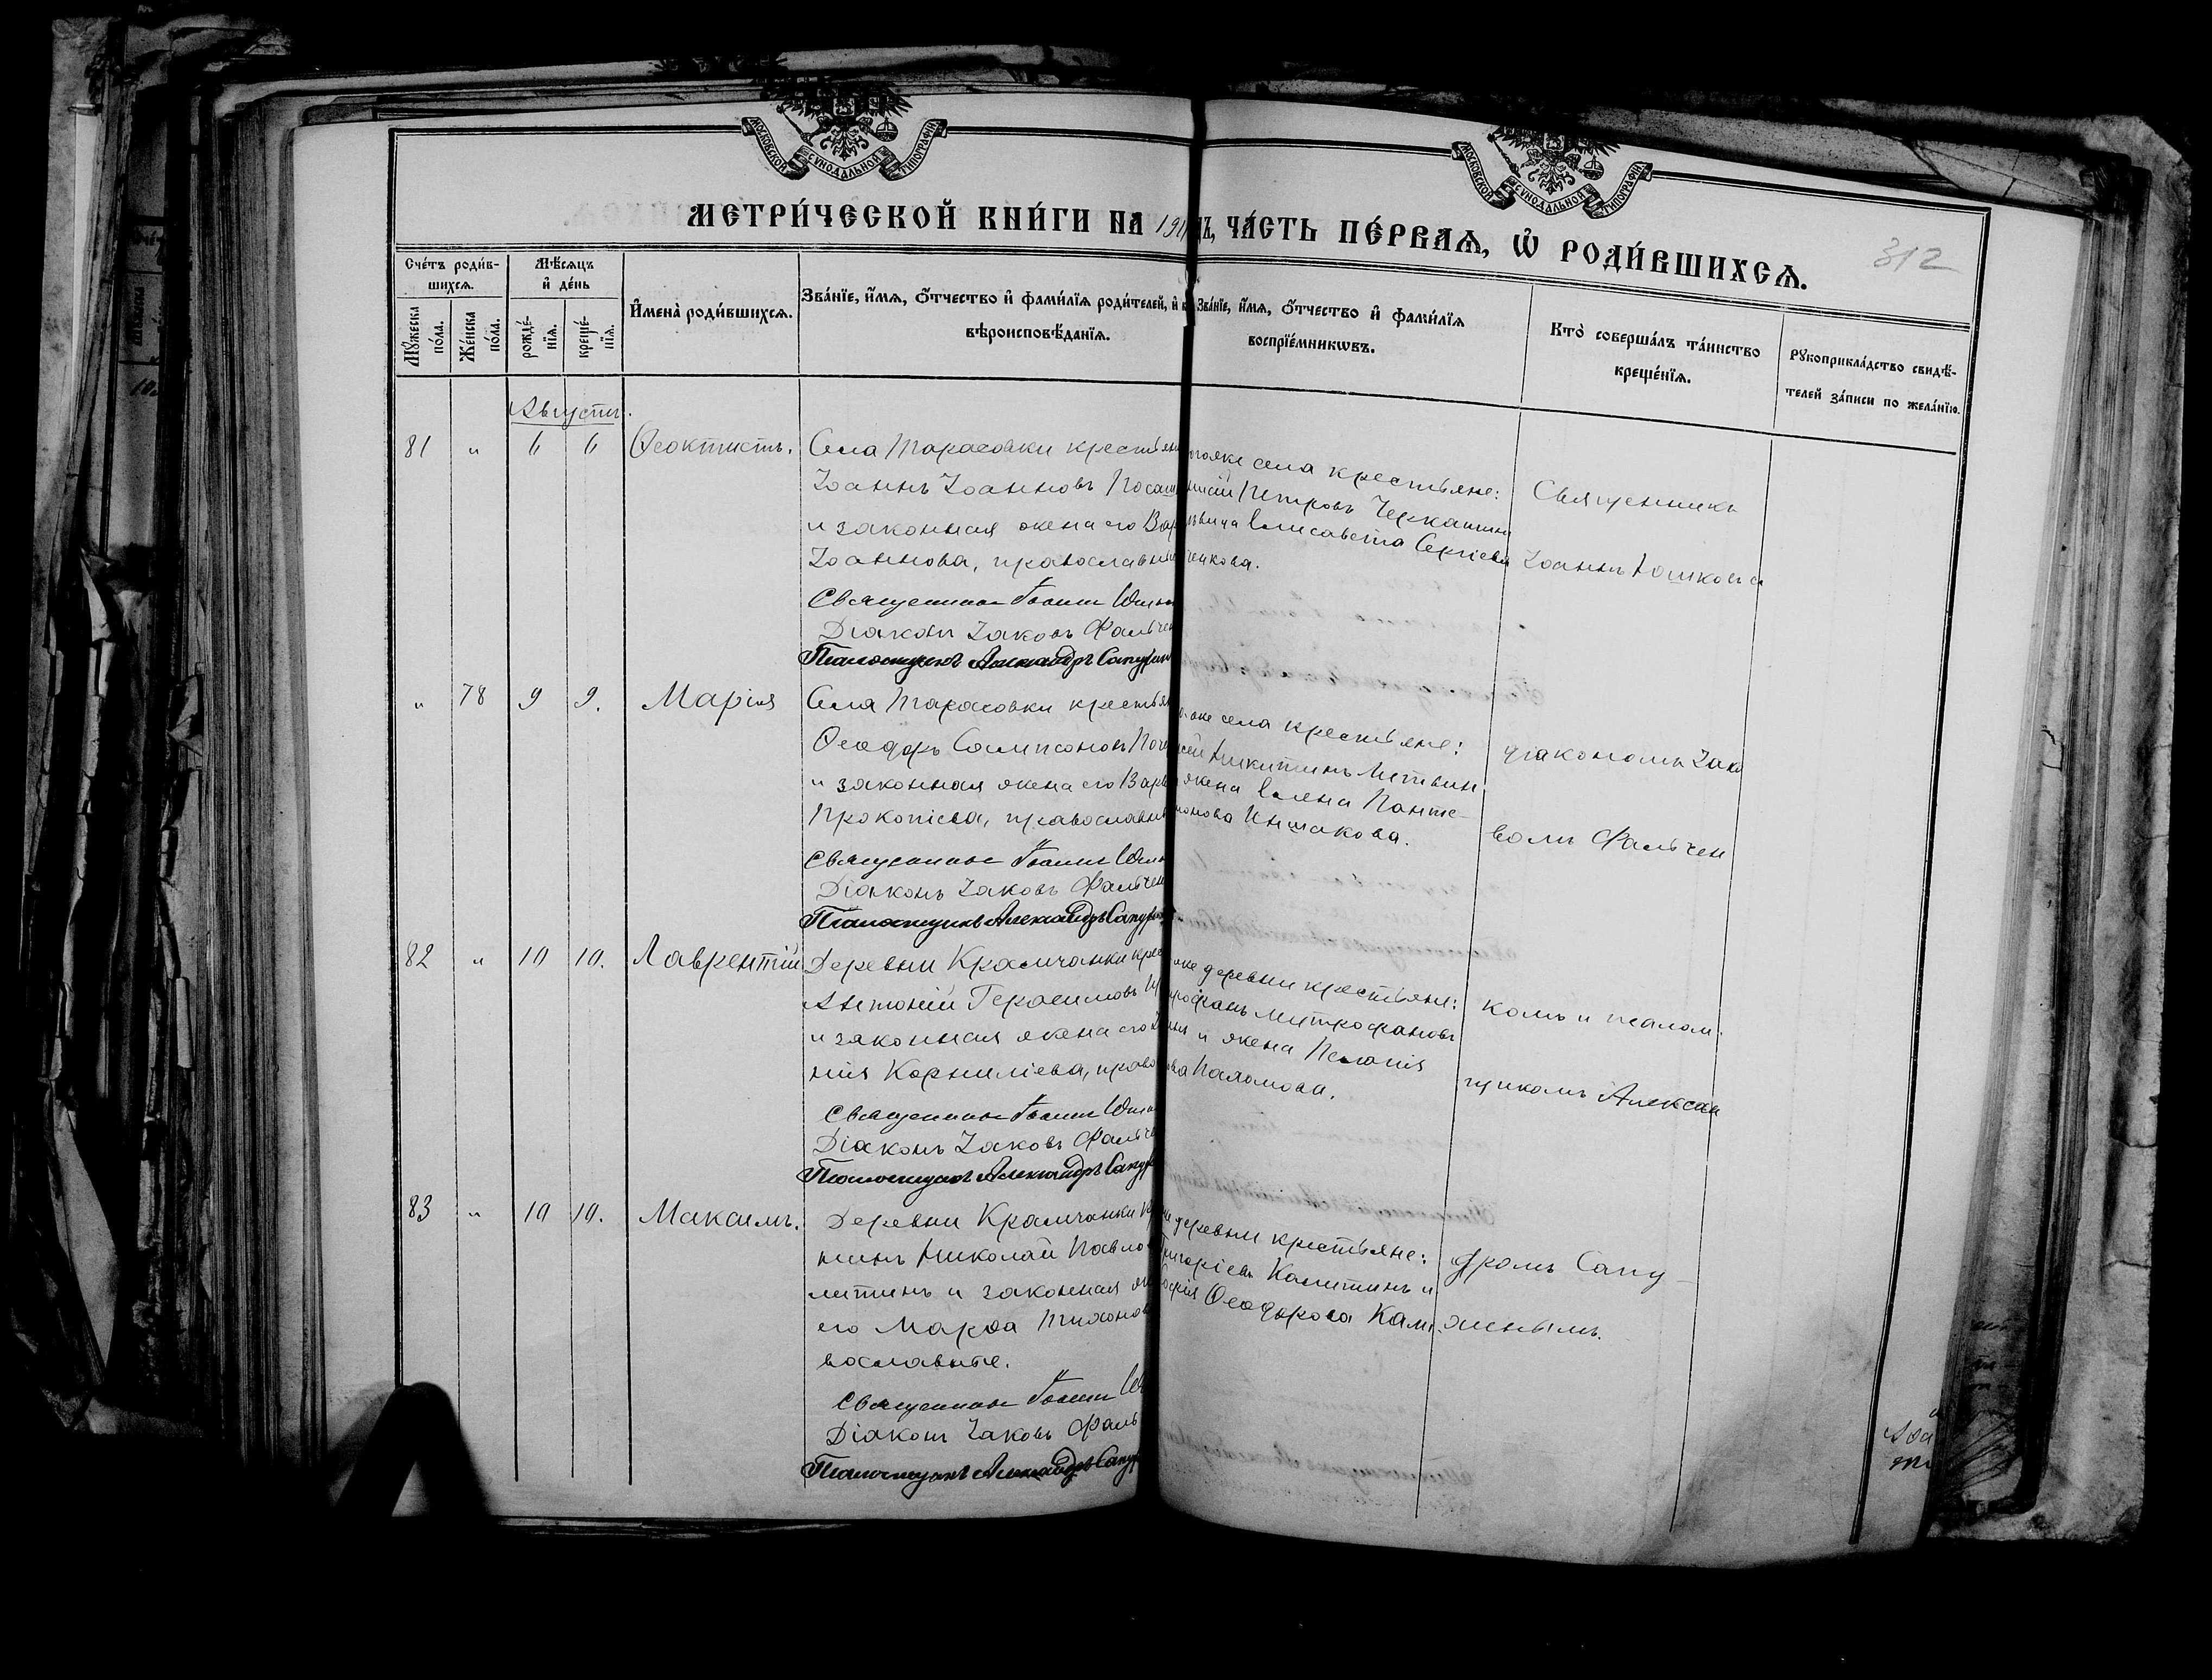 МОСКОВСКОЙ СѴНОДАЛЬНОЙ ТИПОГРАФІИ
МОСКОВСКОЙ СѴНОДАЛЬНОЙ ТИПОГРАФІИ
МЕТРИ́ЧЕСКОЙ КНИ́ГИ НА 191
Ъ, ЧА́СТЬ ПЕ́РВАѦ, Ѡ҆ РОДИ́ВШИХСѦ.
312
Сче́тъ роди́в-
шихсѧ.
Мꙋ́жеска
по́ла.
Же́нска
по́ла.
Мѣ́сѧцъ
и҆ де́нь
рожде́-
нїѧ.
креще́-
нїѧ.
И҆мена̀ роди́вшихсѧ.
Зва́нїе, и҆́мѧ, ѻ҆́тчество и҆ фами́лїѧ роди́телей, и҆ к
вѣроисповѣ́данїѧ.
Зва́нїе, и҆́мѧ, ѻ҆́тчество и҆ фами́лїѧ
воспрїе́мникѡвъ.
Кто̀ соверша́лъ та́инство
креще́нїѧ.
Рꙋкоприкла́дство свидѣ́-
телей за́писи по жела́нїю.
Августъ.
81 " 6 6 Ѳеоктистъ.
Села Тарасовки крестьян
Іоаннъ Іоанновъ Посаш
и законная жена его Вар
Іоаннова, православны
Священникъ Іоаннъ Юшк
Діаконъ Іаковъ Фальчен
Псаломщикъ Александръ Сапухин
тогоже села крестьяне:
Петровъ Черкашин
Елисавета Сергіева
ченкова.
Священникъ
Іоаннъ Юшковъ с
" 78 9 9. Марія
Села Тарасовки крестьян
Ѳеодоръ Сампсоновъ Поч
и законная жена его Варв
Прокопіева, православны
Священникъ Іоаннъ Юшк
Діаконъ Іаковъ Фальчен
Псаломщикъ Александръ Сапухин
оже села крестьяне:
Никитинъ Литвин
жена Елена Панте-
монова Иншакова.
діакономъ Іако
вомъ Фальчен
82 " 10 10. Лаврентій
Деревни Крамчанки крес
Антоній Герасимовъ
и законная жена его
нія Корниліева, право
Священникъ Іоаннъ Юшк
Діаконъ Іаковъ Фальче
Псаломщикъ Александръ Сапух
же деревни крестьяне:
рофанъ Митрофановъ
и жена Пелагія
ова Пахомова.
комъ и псалом-
щикомъ Алексан
83 " 10 10. Максимъ.
Деревни Крамчанки кр
нинъ Николай Павло
литинъ и законная же
его Марѳа Тихонов
вославные.
Священникъ Іоаннъ Ю
Діаконъ Іаковъ Фаль
Псаломщикъ Александръ Сапух
деревни крестьяне:
Григоріевъ Калитинъ и
Софія Ѳеодорова Кали
дромъ Сапу-
хинымъ.